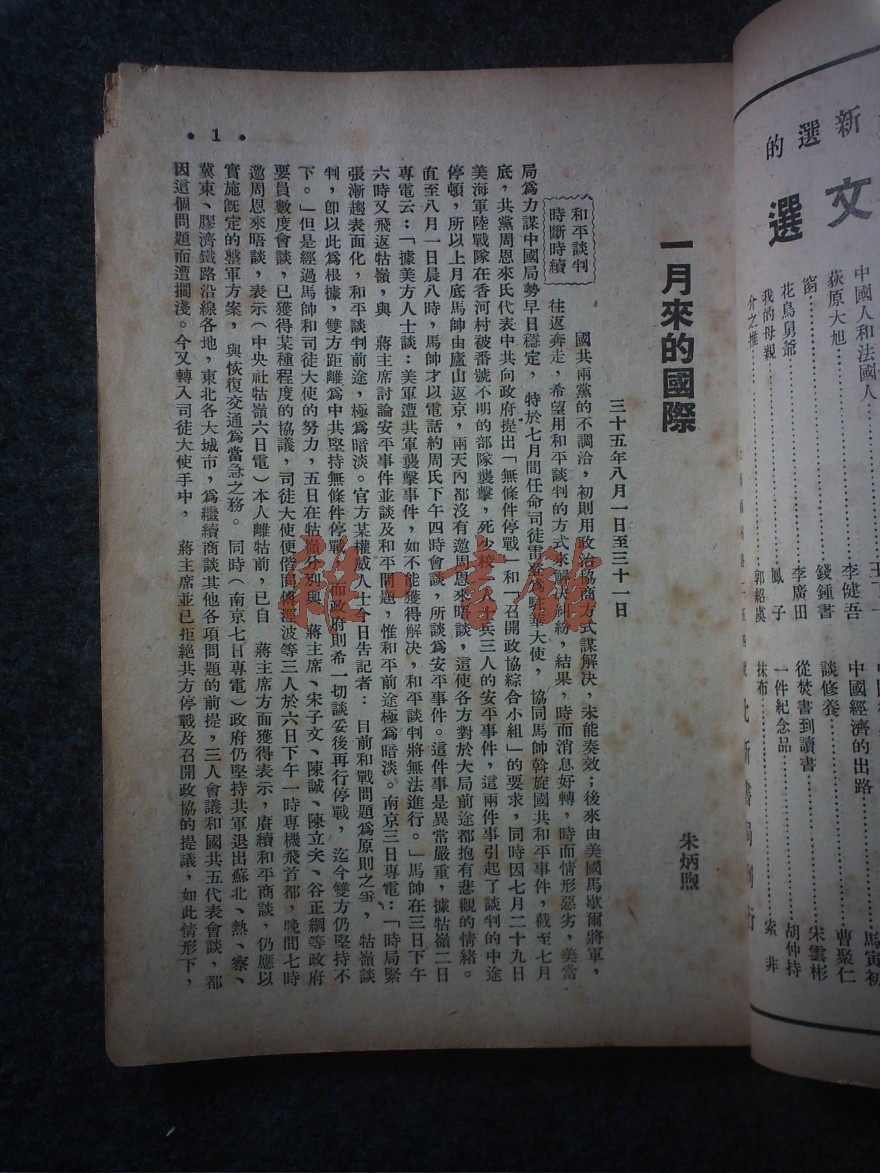 • 1 •
一月來的國際
三十五年八月一日至三十一日
朱炳煦
和平談判
時斷時續
國共兩黨的不調洽，初則用政治協商方式謀解決，未能奏效；後來由美國馬歇爾將軍，
往返奔走，希望用和平談判的方式來解決糾紛，結果，時而消息好轉，時而情形惡劣，美當
局爲力謀中國局勢早日穩定，特於七月間任命司徒雷登爲駐華大使，協同馬帥斡旋國共和平事件，截至七月
底，共黨周恩來氏代表中共向政府提出「無條件停戰」和「召開政協綜合小組」的要求，同時因七月二十九日
美海軍陸戰隊在香河村被番號不明的部隊襲擊，死少校一人士兵三人的安平事件，這兩件事引起了談判的中途
停頓，所以上月底馬帥由廬山返京，兩天內都沒有邀周恩來晤談，這使各方對於大局前途都抱有悲觀的情緒。
直至八月一日晨八時，馬帥才以電話約周氏下午四時會談，所談爲安平事件。這件事是異常嚴重，據牯嶺二日
專電云：「據美方人士談：美軍遭共軍襲擊事件，如不能獲得解決，和平談判將無法進行。」馬帥在三日下午
六時又飛返牯嶺，與　蔣主席討論安平事件並談及和平問題，惟和平前途極爲暗淡。南京三日專電：「時局緊
張漸趨表面化，和平談判前途，極爲暗淡。官方某權威人士今日告記者：目前和戰問題爲原則之爭，牯嶺談
判，卽以此爲根據，雙方距離爲中共堅持無條件停戰，而政府則希一切談妥後再行停戰，迄今雙方仍堅持不
下。」但是經過馬帥和司徒大使的努力，五日在牯嶺分別與　蔣主席、宋子文、陳誠、陳立夫、谷正綱等政府
要員數度會談，已獲得某種程度的協議，司徒大使便偕同傅涇波等三人於六日下午一時專機飛首都，晚間七時
邀周恩來晤談，表示（中央社牯嶺六日電）本人離牯前，已自　蔣主席方面獲得表示，賡續和平商談，仍應以
實施旣定的整軍方案，與恢復交通爲當急之務。同時（南京七日專電）政府仍堅持共軍退出蘇北、熱、察、
冀東、膠濟鐵路沿線各地，東北各大城市，爲繼續商談其他各項問題的前提，三人會議和國共五代表會談，都
因這個問題而遭擱淺。今又轉入司徒大使手中，　蔣主席並已拒絕共方停戰及召開政協的提議，如此情形下，
雜·書館
新選的
文選
中國人和法國人
荻原大旭……李健吾
窗……錢鍾書
花鳥舅爺……李廣田
我的母親……鳳子
介之推……郭紹虞
中國經濟的出路……馬寅初
談修養……曹聚仁
從焚書到讀書……宋雲彬
一件紀念品……胡仲持
抹布……索非
北新書局